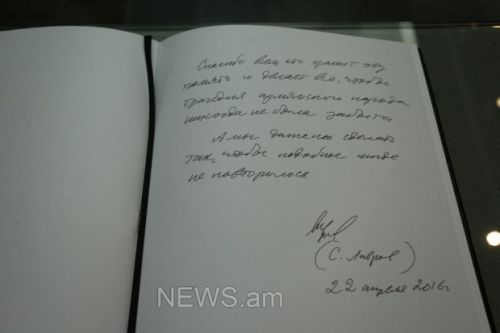 Спасибо всем кто хранит эту
память и делает всё, чтобы
трагедия армянского народа
никогда не была забыта
А мы должны сделать
так, чтобы подобное нигде
не повторилось
(С. Лавров)
22 апреля 2016г
NEWS.am